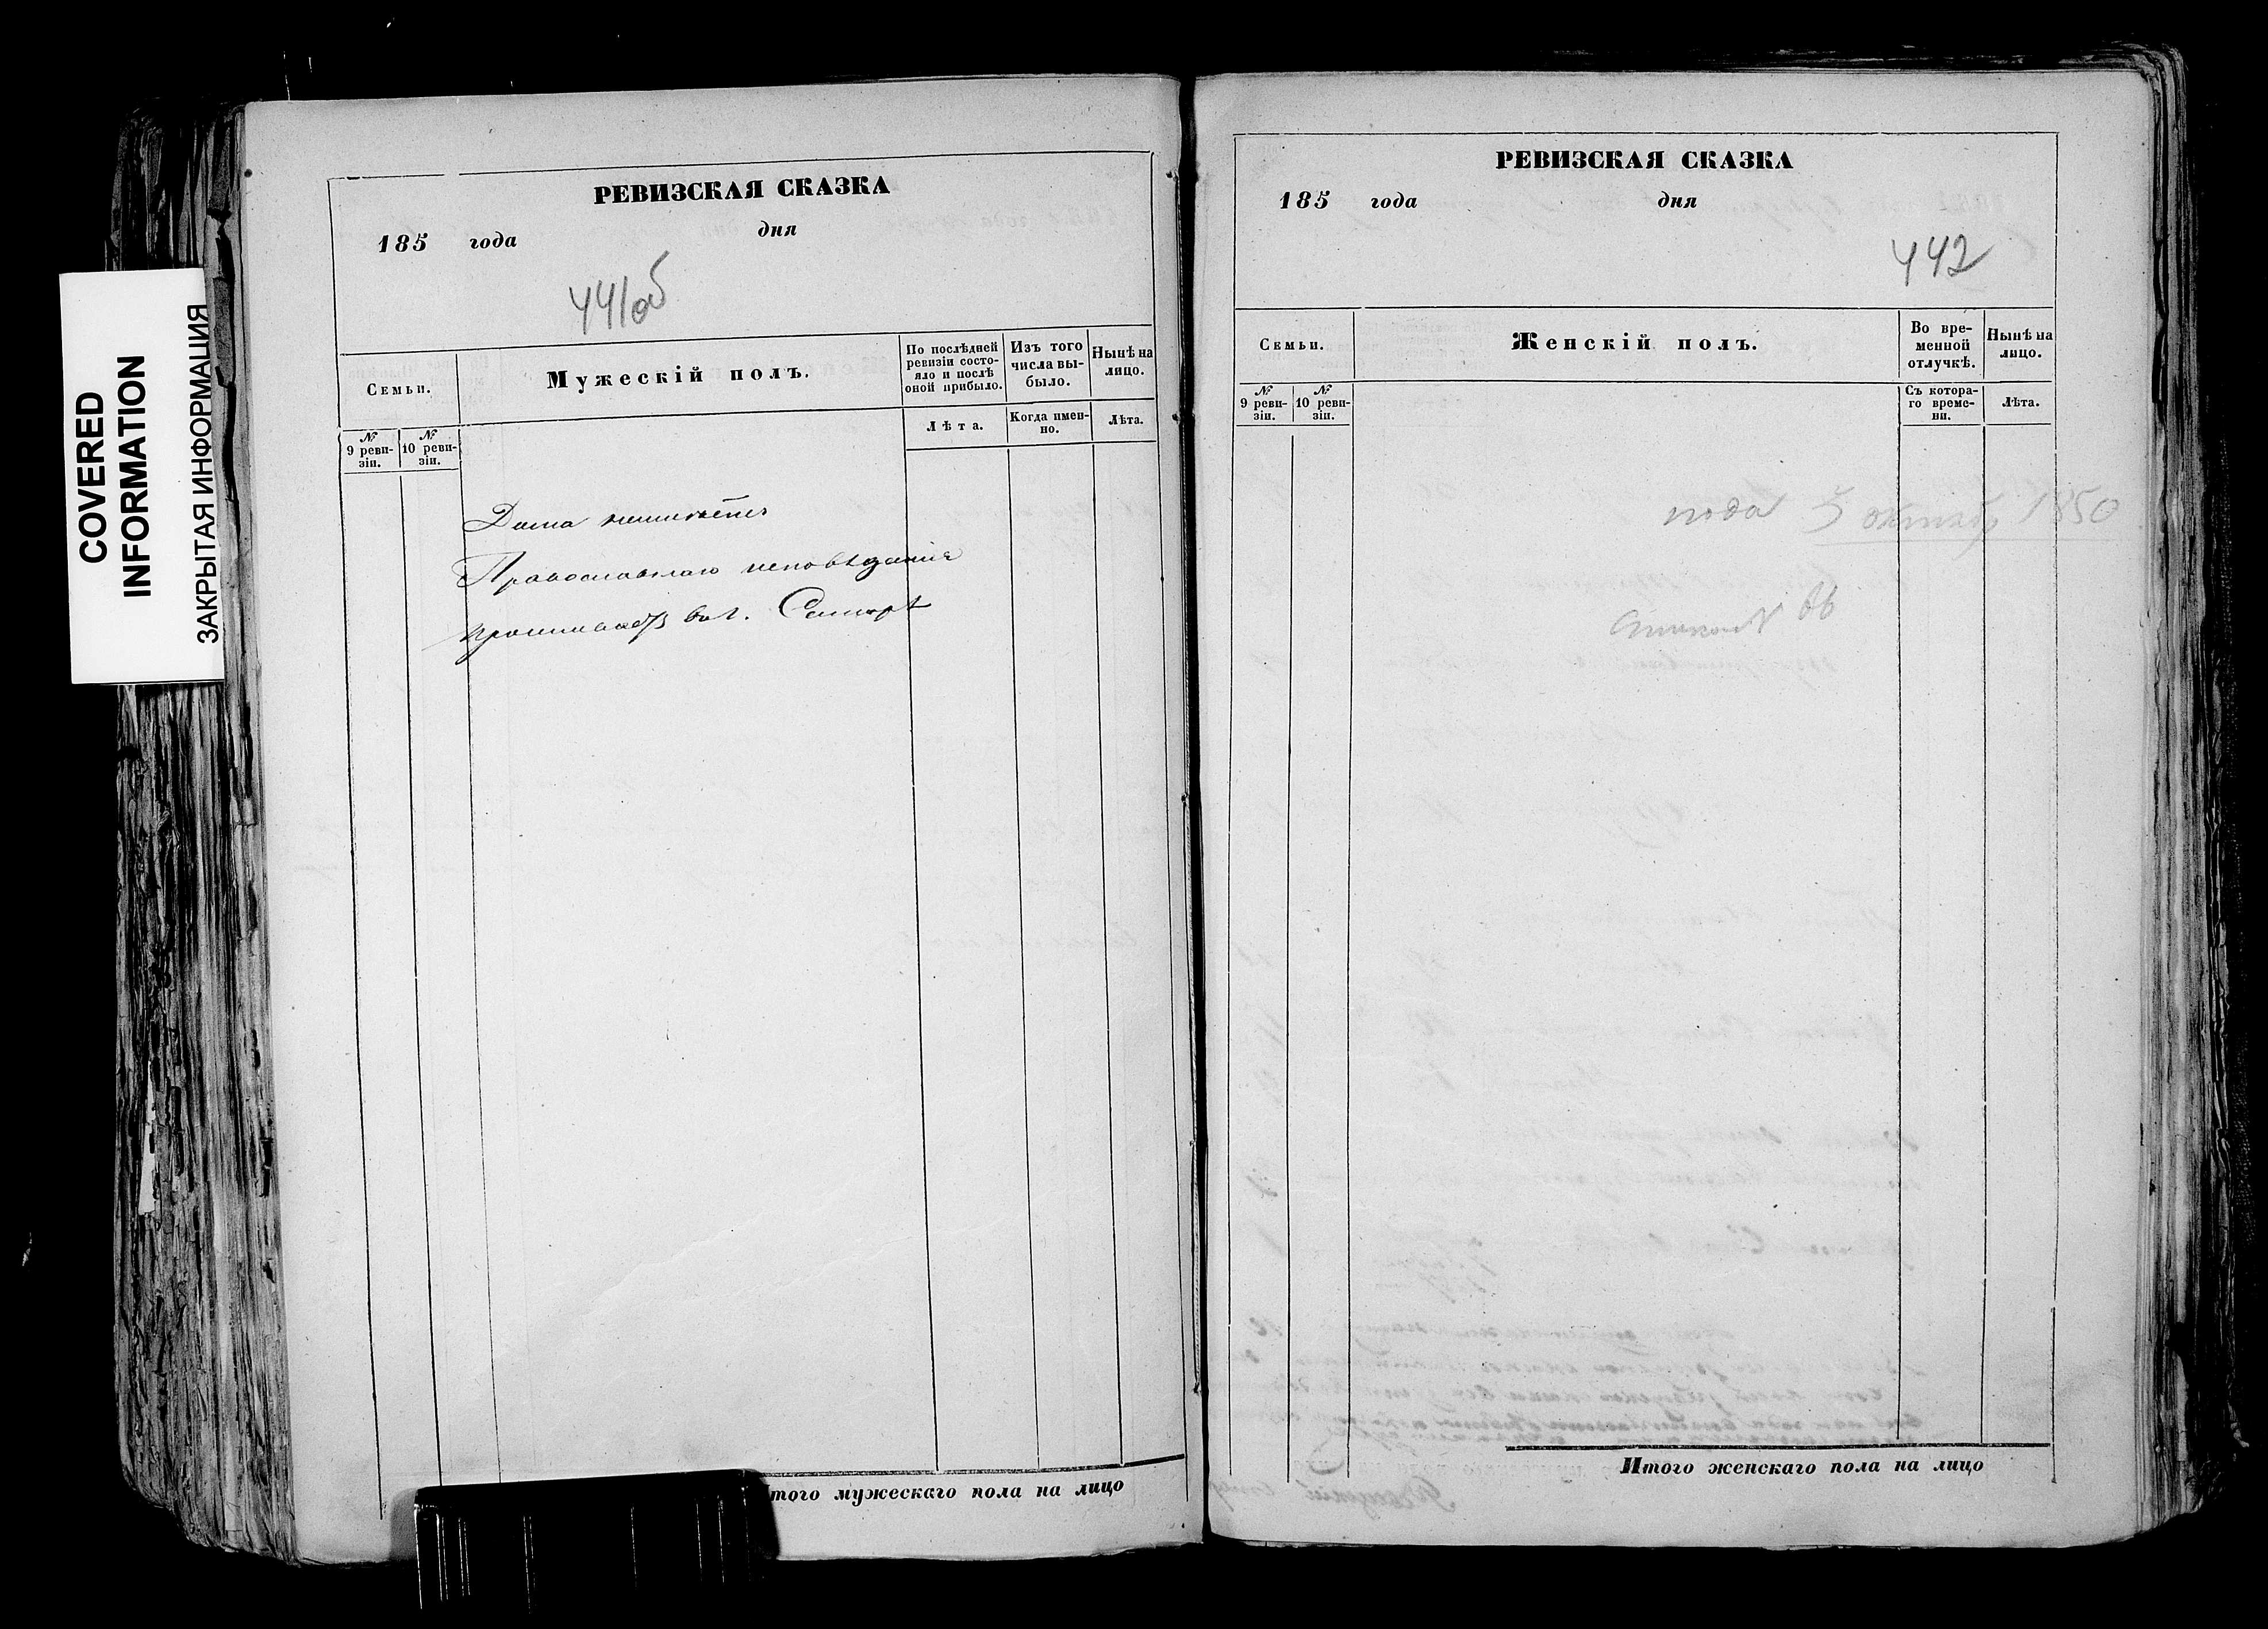 COVERED
INFORMATION
ЗАКРЫТАЯ ИНФОРМАЦИЯ
РЕВИЗСКАЯ СКАЗКА
185 года дня
441об
Семьи.
Мужескій полъ.
По послѣдней ревизіи состояло и послѣ оной прибыло.
Изъ того числа выбыло.
Нынѣ на лицо.
№ 9 ревизіи.
№ 10 ревизіи.
Лѣта.
Когда именно.
Лѣта.
Православнаго исповѣданія
Итого мужескаго пола на лицо
РЕВИЗСКАЯ СКАЗКА
185 года дня
442
Семьи.
Женскій полъ.
Во временной отлучкѣ.
Нынѣ на лицо.
№ 9 ревизіи.
№ 10 ревизіи.
Съ котораго времени.
Лѣта.
года 5 октябр 1850
Итого женскаго пола на лицо